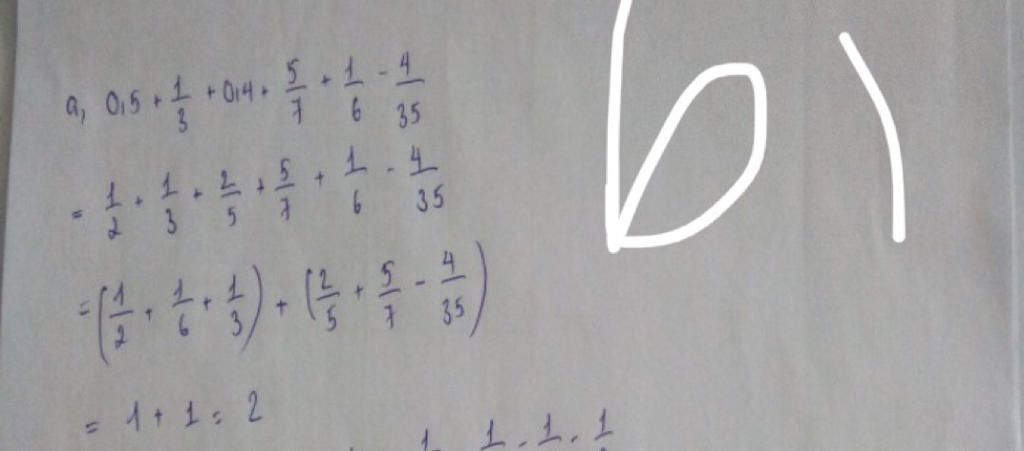 a, 0,5 + 1/3 + 0,4 + 5/7 + 1/6 - 4/35
= 1/2 + 1/3 + 2/5 + 5/7 + 1/6 - 4/35
= (1/2 + 1/6 + 1/3) + (2/5 + 5/7 - 4/35)
= 1 + 1 = 2